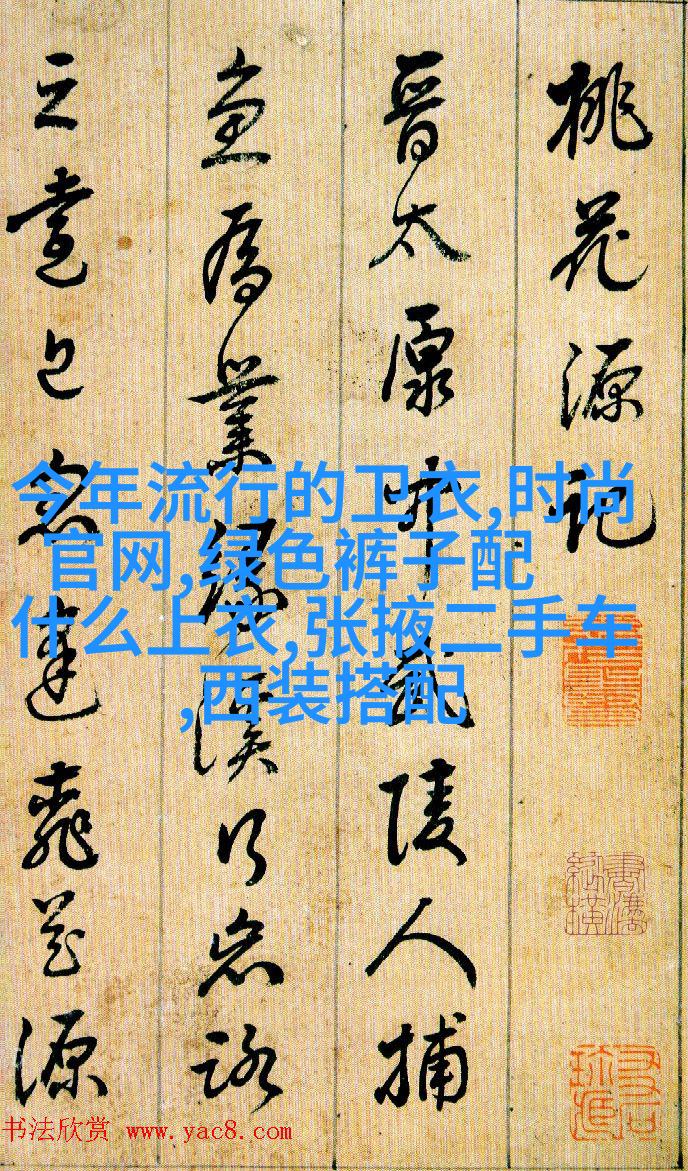 桃花源記
晉太原中武陵人捕
魚爲業緣溪行忘路
之遠近忽逢桃花源
今年流行的卫衣,时尚
官网,绿色裤子配
什么上衣,张掖二手车
,西装搭配
书法欣赏 www.yac8.com